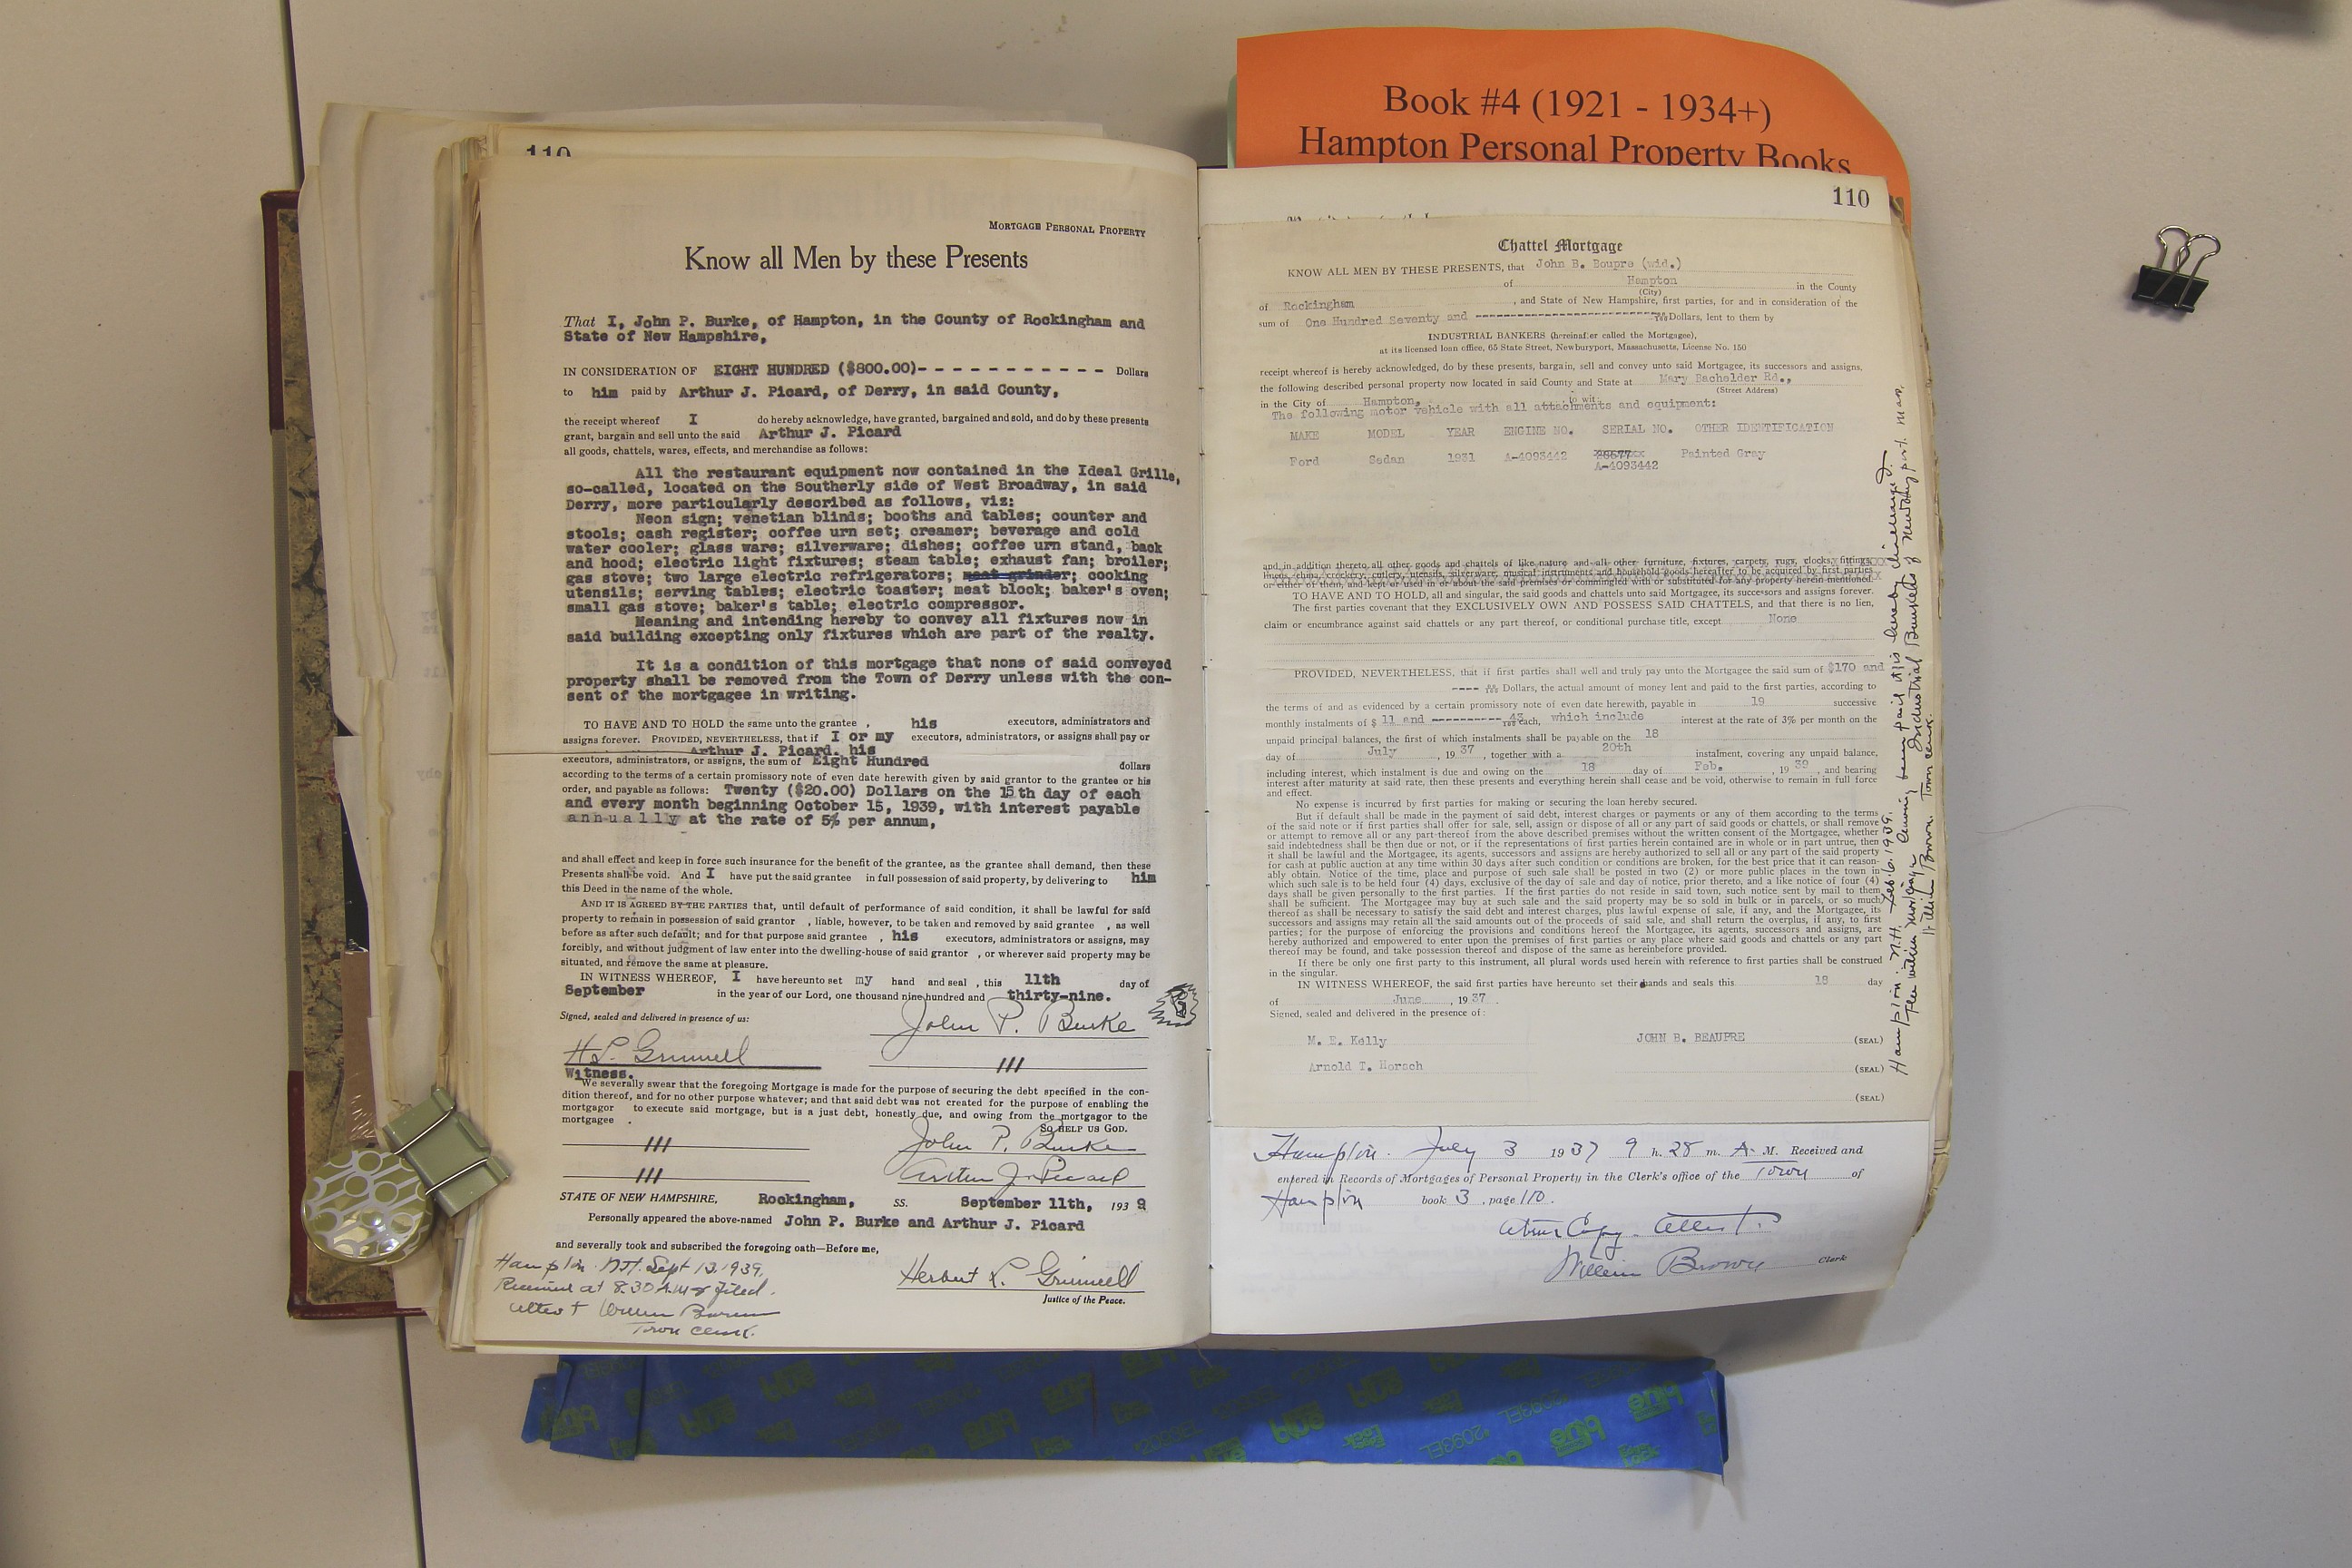 Book #4 (1921 - 1934+)
Hampton Personal Property Books
110
MORTGAGE PERSONAL PROPERTY
Know all Men by these Presents
That I, John P. Burke, of Hampton, in the County of Rockingham and
State of New Hampshire,
IN CONSIDERATION OF EIGHT HUNDRED ($800.00)- - - - - - - - - - - Dollars
to him paid by Arthur J. Picard, of Derry, in said County,
the receipt whereof I do hereby acknowledge, have granted, bargained and sold, and do by these presents
grant, bargain and sell unto the said Arthur J. Picard
all goods, chattels, wares, effects, and merchandise as follows:
All the restaurant equipment now contained in the Ideal Grille,
so-called, located on the Southerly side of West Broadway, in said
Derry, more particularly described as follows, viz:
Neon sign; venetian blinds; booths and tables; counter and
stools; cash register; coffee urn set; creamer; beverage and cold
water cooler; glass ware; silverware; dishes; coffee urn stand, back
and hood; electric light fixtures; steam table; exhaust fan; broiler;
gas stove; two large electric refrigerators; meat grinder; cooking
utensils; serving tables; electric toaster; meat block; baker's oven;
small gas stove; baker's table; electric compressor.
Meaning and intending hereby to convey all fixtures now in
said building excepting only fixtures which are part of the realty.
It is a condition of this mortgage that none of said conveyed
property shall be removed from the Town of Derry unless with the con-
sent of the mortgagee in writing.
TO HAVE AND TO HOLD the same unto the grantee , his executors, administrators and
assigns forever. PROVIDED, NEVERTHELESS, that if I or my executors, administrators, or assigns shall pay or
Arthur J. Picard, his
executors, administrators, or assigns, the sum of Eight Hundred dollars
according to the terms of a certain promissory note of even date herewith given by said grantor to the grantee or his
order, and payable as follows: Twenty ($20.00) Dollars on the 15th day of each
and every month beginning October 15, 1939, with interest payable
annually at the rate of 5% per annum,
and shall effect and keep in force such insurance for the benefit of the grantee, as the grantee shall demand, then these
Presents shall be void. And I have put the said grantee in full possession of said property, by delivering to him
this Deed in the name of the whole.
AND IT IS AGREED BY THE PARTIES that, until default of performance of said condition, it shall be lawful for said
property to remain in possession of said grantor , liable, however, to be taken and removed by said grantee , as well
before as after such default; and for that purpose said grantee , his executors, administrators or assigns, may
forcibly, and without judgment of law enter into the dwelling-house of said grantor , or wherever said property may be
situated, and remove the same at pleasure.
IN WITNESS WHEREOF, I have hereunto set my hand and seal , this 11th day of
September in the year of our Lord, one thousand nine hundred and thirty-nine.
Signed, sealed and delivered in presence of us:
John P. Burke
H. L. Grinnell
Witness.
We severally swear that the foregoing Mortgage is made for the purpose of securing the debt specified in the con-
dition thereof, and for no other purpose whatever; and that said debt was not created for the purpose of enabling the
mortgagor to execute said mortgage, but is a just debt, honestly due, and owing from the mortgagor to the
mortgagee .
SO HELP US GOD.
John P. Burke
Arthur J. Picard
STATE OF NEW HAMPSHIRE, Rockingham, SS. September 11th, 1939
Personally appeared the above-named John P. Burke and Arthur J. Picard
and severally took and subscribed the foregoing oath—Before me,
Herbert L. Grinnell
Justice of the Peace.
Hampton N.H. Sept 12. 1939.
Received at 8.30 A.M & filed.
Attest William Brown
Town Clerk.
110
Chattel Mortgage
KNOW ALL MEN BY THESE PRESENTS, that John B. Boupre (wid.)
of Hampton in the County
(City)
of Rockingham , and State of New Hampshire, first parties, for and in consideration of the
sum of One Hundred Seventy and ---------- Dollars, lent to them by
INDUSTRIAL BANKERS (hereinafter called the Mortgagee),
at its licensed loan office, 65 State Street, Newburyport, Massachusetts, License No. 150
receipt whereof is hereby acknowledged, do by these presents, bargain, sell and convey unto said Mortgagee, its successors and assigns,
the following described personal property now located in said County and State at Mary Bachelder Rd.,
(Street Address)
in the City of Hampton, to wit:
The following motor vehicle with all attachments and equipment:
MAKE MODEL YEAR ENGINE NO. SERIAL NO. OTHER IDENTIFICATION
Ford Sedan 1931 A-4093442 Painted Gray
A-4093442
and in addition thereto all other goods and chattels of like nature and all other furniture, fixtures, carpets, rugs, clocks, fittings,
linens, china, crockery, cutlery, utensils, silverware, musical instruments and household goods hereafter to be acquired by first parties
or either of them, and kept or used in or about the said premises or commingled with or substituted for any property herein mentioned.
TO HAVE AND TO HOLD, all and singular, the said goods and chattels unto said Mortgagee, its successors and assigns forever.
The first parties covenant that they EXCLUSIVELY OWN AND POSSESS SAID CHATTELS, and that there is no lien,
claim or encumbrance against said chattels or any part thereof, or conditional purchase title, except None
PROVIDED, NEVERTHELESS, that if first parties shall well and truly pay unto the Mortgagee the said sum of $170 and
---- Dollars, the actual amount of money lent and paid to the first parties, according to
the terms of and as evidenced by a certain promissory note of even date herewith, payable in 19 successive
monthly instalments of $ 11 and ---------- 43 each, which include interest at the rate of 3% per month on the
unpaid principal balances, the first of which instalments shall be payable on the 18
day of July , 1937 , together with a 20th instalment, covering any unpaid balance,
including interest, which instalment is due and owing on the 18 day of Feb. , 1939 , and bearing
interest after maturity at said rate, then these presents and everything herein shall cease and be void, otherwise to remain in full force
and effect.
No expense is incurred by first parties for making or securing the loan hereby secured.
But if default shall be made in the payment of said debt, interest charges or payments or any of them according to the terms
of the said note or if first parties shall offer for sale, sell, assign or dispose of all or any part of said goods or chattels, or shall remove
or attempt to remove all or any part thereof from the above described premises without the written consent of the Mortgagee, whether
said indebtedness shall be then due or not, or if the representations of first parties herein contained are in whole or in part untrue, then
it shall be lawful and the Mortgagee, its agents, successors and assigns are hereby authorized to sell all or any part of the said property
for cash at public auction at any time within 30 days after such condition or conditions are broken, for the best price that it can reason-
ably obtain. Notice of the time, place and purpose of such sale shall be posted in two (2) or more public places in the town in
which such sale is to be held four (4) days, exclusive of the day of sale and day of notice, prior thereto, and a like notice of four (4)
days shall be given personally to the first parties. If the first parties do not reside in said town, such notice sent by mail to them
shall be sufficient. The Mortgagee may buy at such sale and the said property may be so sold in bulk or in parcels, or so much
thereof as shall be necessary to satisfy the said debt and interest charges, plus lawful expense of sale, if any, and the Mortgagee, its
successors and assigns may retain all the said amounts out of the proceeds of said sale, and shall return the overplus, if any, to first
parties; for the purpose of enforcing the provisions and conditions hereof the Mortgagee, its agents, successors and assigns, are
hereby authorized and empowered to enter upon the premises of first parties or any place where said goods and chattels or any part
thereof may be found, and take possession thereof and dispose of the same as hereinbefore provided.
If there be only one first party to this instrument, all plural words used herein with reference to first parties shall be construed
in the singular.
IN WITNESS WHEREOF, the said first parties have hereunto set their hands and seals this 18 day
of June , 1937 .
Signed, sealed and delivered in the presence of:
M. E. Kelly JOHN B. BEAUPRE (SEAL)
Arnold T. Horsch (SEAL)
(SEAL)
Hampton. July 3 1937 9 h. 28 m. A. M. Received and
entered in Records of Mortgages of Personal Property in the Clerk's office of the Town of
Hampton book 3 , page 110.
A true Copy. Attest.
William Brown Clerk
Hampton N.H. Feb. 6. 1939.
The within mortgage having been paid it is hereby discharged.
Industrial Bankers of Newburyport. Mas.
William Brown. Town Clerk.